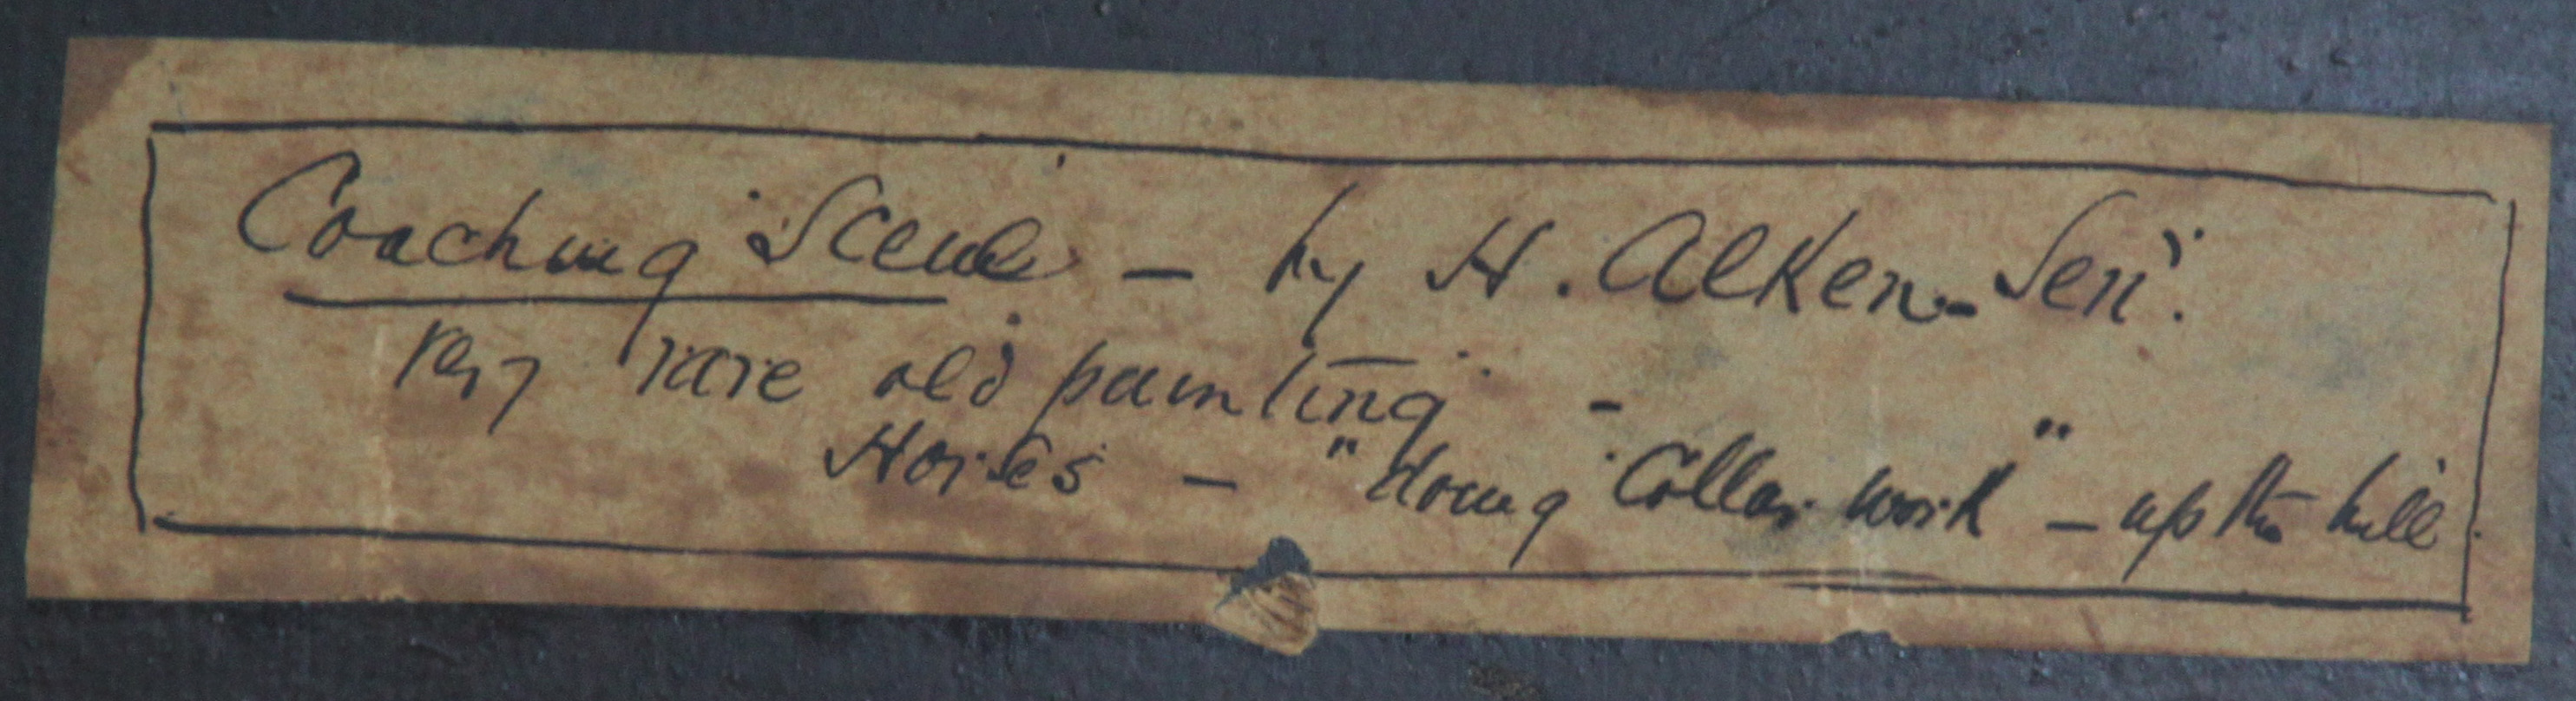 Coaching Scene - by H. Alken - Senr.
Very rare old painting -
Horses - "doing Collar work" - up the hill.